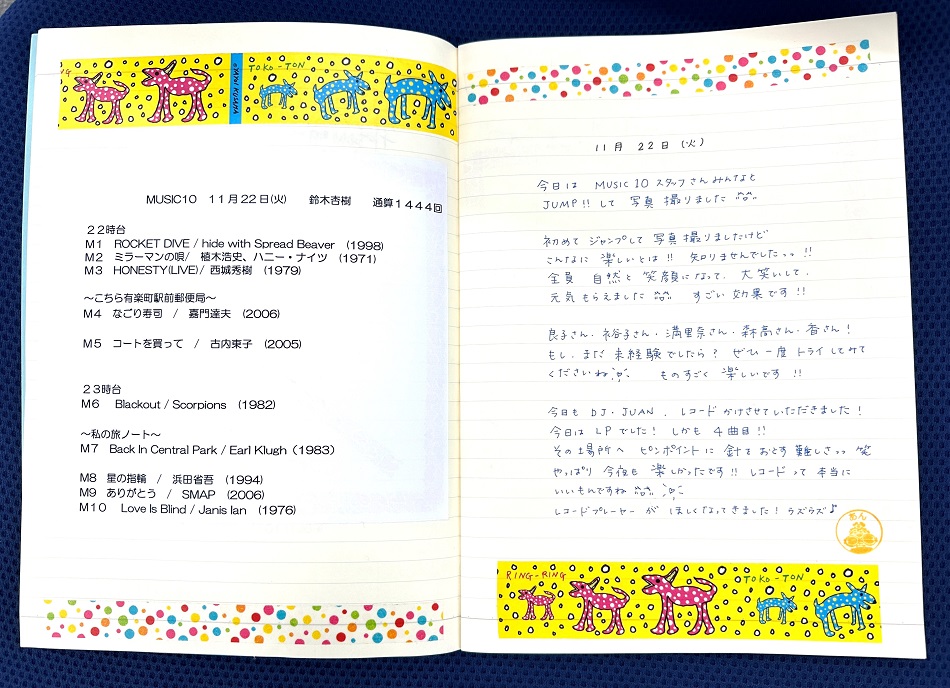 TOKO-TON
MUSIC10　11月22日(火)　鈴木杏樹　通算1444回
22時台
M1　ROCKET DIVE / hide with Spread Beaver　(1998)
M2　ミラーマンの唄/　植木浩史、ハニー・ナイツ　(1971)
M3　HONESTY(LIVE)/ 西城秀樹　(1979)
～こちら有楽町駅前郵便局～
M4　なごり寿司　/　嘉門達夫　(2006)
M5　コートを買って　/　古内東子　(2005)
23時台
M6　Blackout / Scorpions　(1982)
～私の旅ノート～
M7　Back In Central Park / Earl Klugh (1983)
M8　星の指輪　/　浜田省吾　(1994)
M9　ありがとう　/　SMAP　(2006)
M10　Love Is Blind / Janis Ian　(1976)
11月 22日 (火)
今日は MUSIC10 スタッフさんみんなと
JUMP!! して 写真 撮りました
初めて ジャンプして 写真 撮りましたけど
こんなに 楽しいとは!! 知りませんでしたっっ!!
全員 自然と 笑顔になって、大笑いして、
元気もらえました すごい 効果です!!
良子さん・裕子さん・満里奈さん・森高さん・香さん!
もし、まだ 未経験でしたら? ぜひ一度 トライしてみて
くださいね ものすごく 楽しいです !!
今日も DJ・JUAN、レコードかけさせていただきました!
今日は LPでした! しかも 4曲目!!
その場所へ ピンポイントに 針をおとす難しさっっ 笑
やっぱり 今夜も 楽しかったです!! レコードって 本当に
いいもんですね
レコードプレーヤー が ほしくなってきました! ウズウズ♪
あん
RING-RING
TOKO-TON